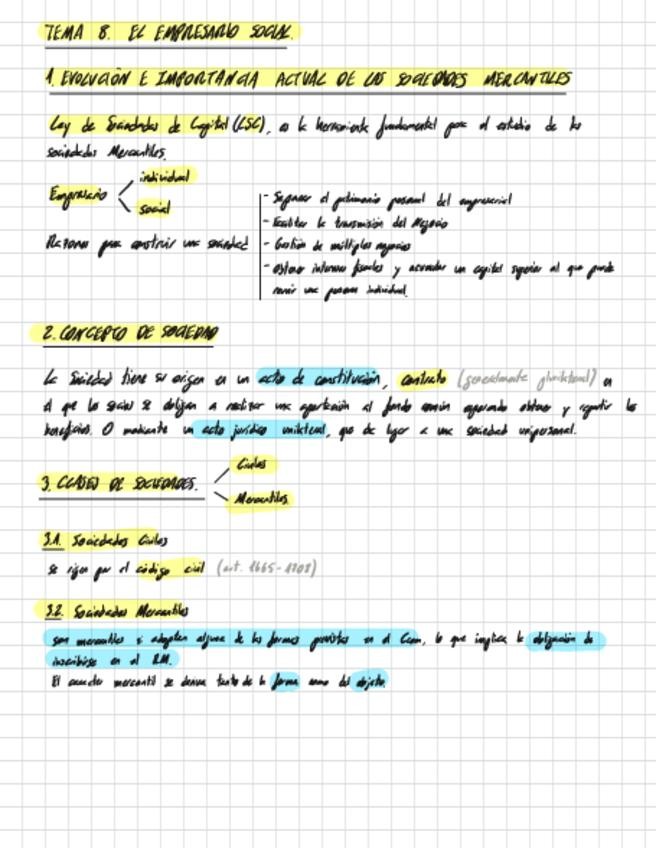 TEMA 8. EL EMPRESARIO SOCIAL.
1. EVOLUCIÓN E IMPORTANCIA ACTUAL DE LAS SOCIEDADES MERCANTILES
Ley de Sociedades de Capital (LSC), es la herramienta fundamental para el estudio de las
sociedades Mercantiles.
Empresario
individual
social
Razones para construir una sociedad
- Separar el patrimonio personal del empresarial
- Facilitar la transmisión del Negocio
- Gestión de múltiples negocios
- obtener intereses fiscales y acumular un capital superior al que puede
reunir una persona individual.
2. CONCEPTO DE SOCIEDAD
La Sociedad tiene su origen en un acto de constitución, contrato (generalmente plurilateral) en
el que los socios se obligan a realizar una aportación al fondo común esperando obtener y repartir los
beneficios. O mediante un acto jurídico unilateral, que da lugar a una sociedad unipersonal.
3. CLASES DE SOCIEDADES.
Civiles
Mercantiles
3.1. Sociedades Civiles
se rigen por el código civil (art. 1665-1708)
3.2. Sociedades Mercantiles
son mercantiles si adoptan alguna de las formas previstas en el Ccom, lo que implica la obligación de
inscribirse en el RM.
El caracter mercantil se deriva tanto de la forma como del objeto.